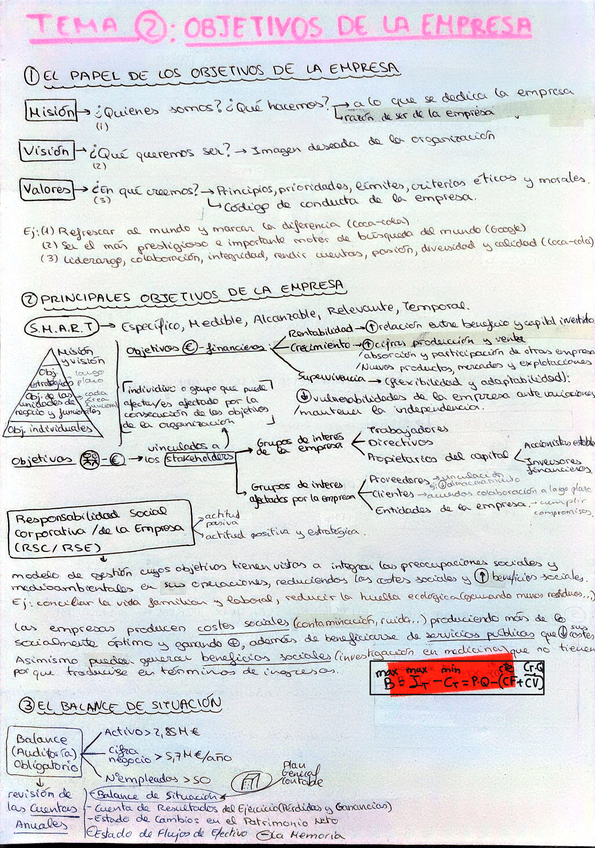 TEMA ②: OBJETIVOS DE LA EMPRESA
① EL PAPEL DE LOS OBJETIVOS DE LA EMPRESA
Misión → ¿Quienes somos? ¿Qué hacemos? → a lo que se dedica la empresa
(1) ↳ razón de ser de la empresa
Visión → ¿Qué queremos ser? → Imagen deseada de la organización
(2)
Valores → ¿En qué creemos? → Principios, prioridades, límites, criterios eticos y morales.
(3) ↳ Código de conducta de la empresa.
Ej: (1) Refrescar al mundo y marcar la diferencia (Coca-cola)
(2) Ser el más prestigioso e importante motor de búsqueda del mundo (Google)
(3) Liderazgo, colaboración, integridad, rendir cuentas, pasión, diversidad y calidad (Coca-cola)
② PRINCIPALES OBJETIVOS DE LA EMPRESA
S.M.A.R.T → Específico, Medible, Alcanzable, Relevante, Temporal.
Objetivos € - financieros
Rentabilidad → ↑ relación entre beneficio y capital invertido
Crecimiento → ↑ cifras producción y venta
/absorción y participación de otras empresas
/Nuevos productos, mercados y explotaciones
Supervivencia → (flexibilidad y adaptabilidad):
↓ vulnerabilidades de la empresa ante variaciones
/mantener la independencia.
Misión y visión
Obj. estratégico largo plazo
Obj. de las unidades de negocio y funcionales cada área función
Obj. individuales
individuo o grupo que puede
afectar/es afectado por la
consecución de los objetivos
de la organización
Objetivos - € → los stakeholders
vinculados a
Grupos de interés de la empresa
Trabajadores
Directivos
Propietarios del capital
Accionistas estables
Inversores financieros
Grupos de interés afectados por la empresa
Proveedores → vinculación
Clientes → acuerdos colaboración a largo plazo
Entidades de la empresa → cumplir compromisos.
Responsabilidad Social
Corporativa /de la Empresa
(RSC/RSE)
actitud pasiva
actitud positiva y estratégica.
modelo de gestión cuyos objetivos tienen vistas a integrar las preocupaciones sociales y
medioambientales en sus operaciones, reduciendo los costes sociales y ↑ beneficios sociales.
Ej: conciliar la vida familiar y laboral, reducir la huella ecológica (generando menos residuos...)
Las empresas producen costes sociales (contaminación, ruido...) produciendo más de lo
socialmente óptimo y ganando ⊕, además de beneficiarse de servicios públicos que ↓ sus costes
Asimismo pueden generar beneficios sociales (investigación en medicina) que no tienen
por que traducirse en términos de ingresos.
max max min cte Cr·Q
B = IT - CT = P·Q - (CF + CV)
③ EL BALANCE DE SITUACIÓN
Balance (Auditoría) Obligatorio
Activo > 2,85 M €
Cifra negocio > 5,7 M €/año
Nº empleados > 50
Plan General Contable
revisión de las Cuentas Anuales
- Balance de Situación
- Cuenta de Resultados del Ejercicio (Pérdidas y Ganancias)
- Estado de Cambios en el Patrimonio Neto
- Estado de Flujos de Efectivo - La Memoria